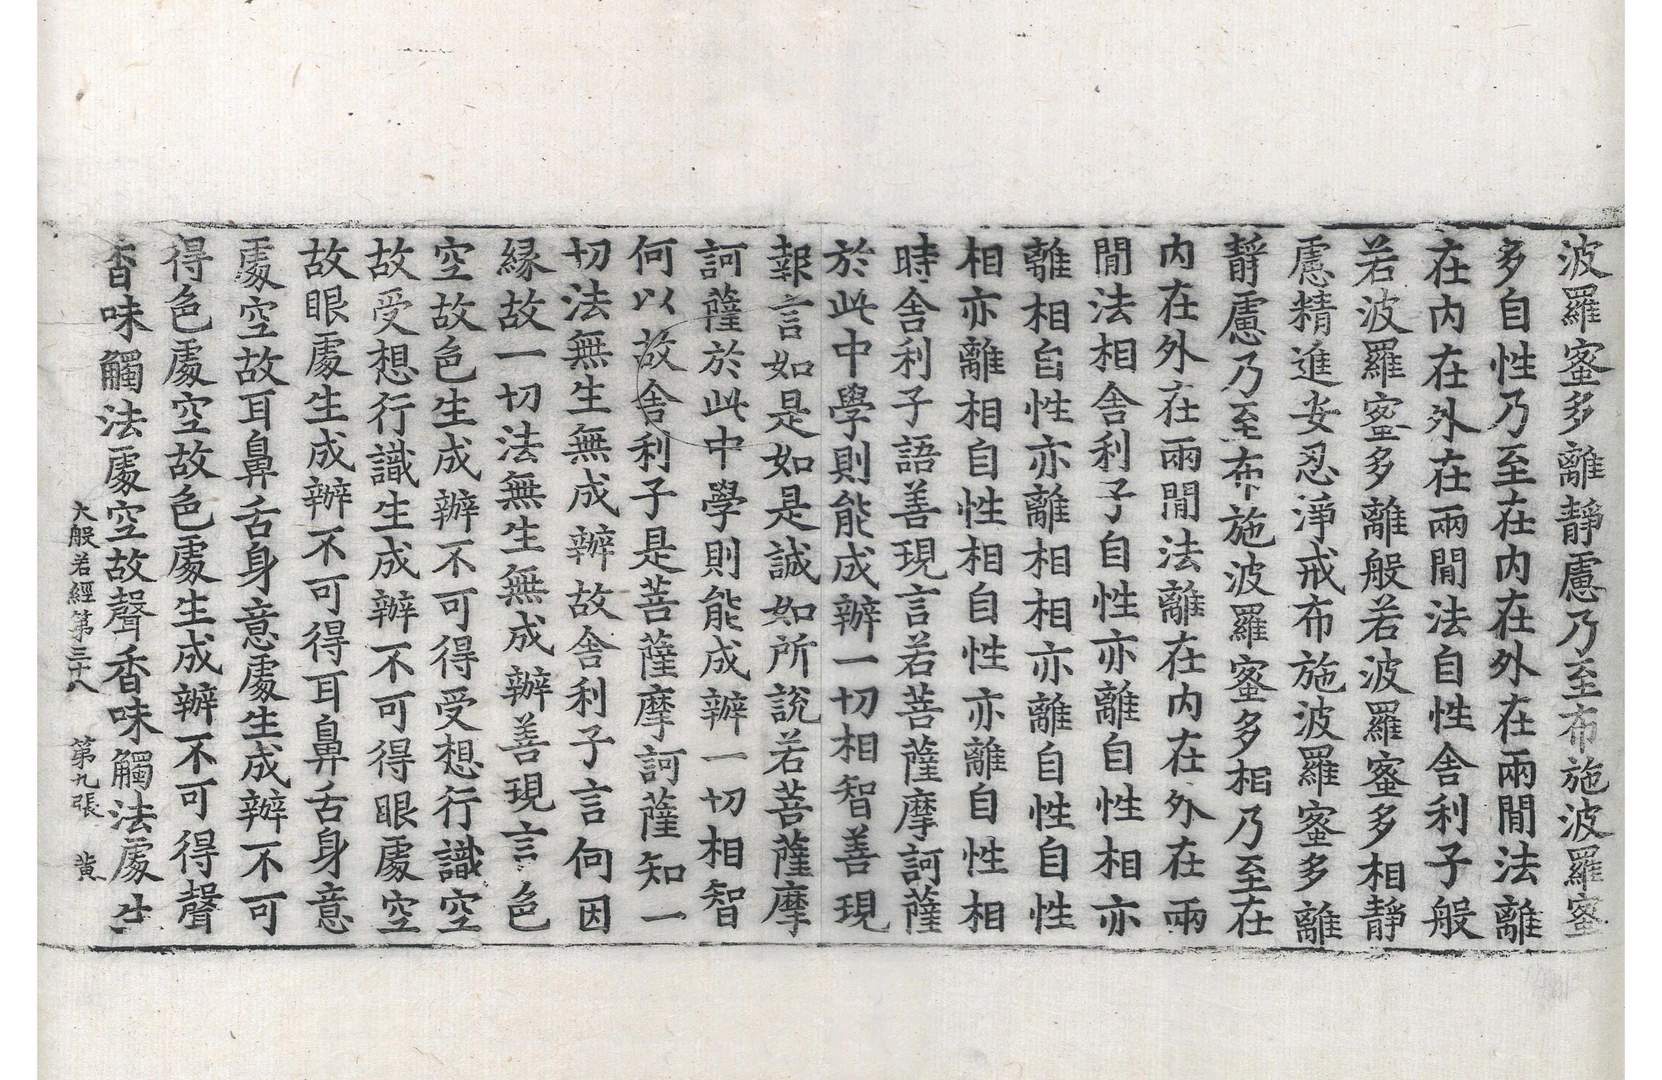 波羅蜜多離靜慮乃至布施波羅蜜
多自性乃至在内在外在兩閒法離
在内在外在兩閒法自性舍利子般
若波羅蜜多離般若波羅蜜多相靜
慮精進安忍淨戒布施波羅蜜多離
靜慮乃至布施波羅蜜多相乃至在
内在外在兩閒法離在内在外在兩
閒法相舍利子自性亦離自性相亦
離相自性亦離相相亦離自性自性
相亦離相自性相自性亦離自性相
時舍利子語善現言若菩薩摩訶薩
於此中學則能成辦一切相智善現
報言如是如是誠如所說若菩薩摩
訶薩於此中學則能成辦一切相智
何以故舍利子是菩薩摩訶薩知一
切法無生無成辦故舍利子言何因
緣故一切法無生無成辦善現言色
空故色生成辦不可得受想行識空
故受想行識生成辦不可得眼處空
故眼處生成辦不可得耳鼻舌身意
處空故耳鼻舌身意處生成辦不可
得色處空故色處生成辦不可得聲
香味觸法處空故聲香味觸法處生
大般若經第三十八 第九張 黃